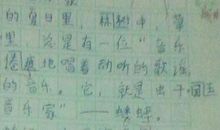 的夏日里，森林中，草
里，总是有一位"音乐
地唱着动听的歌谣
的音乐。它，就是出于
音乐家"——蟋蟀。